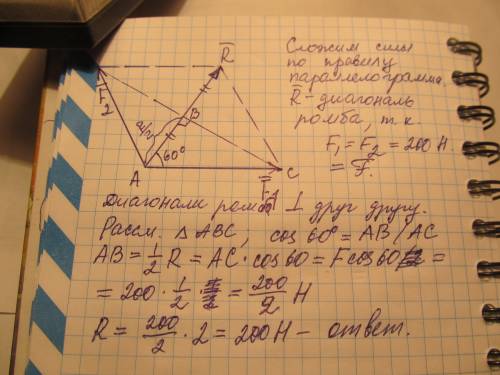 Сложим силы
по правилу
параллелограмма.
R̅ - диагональ
ромба, т.к.
F₁ = F₂ = 200 Н.
= F.
R̅
F₂
B
a/2
60°
A
C
Диагонали ромба ⊥ друг другу.
Рассм. △ ABC, cos 60° = AB / AC
AB = 1/2 R = AC · cos 60 = F cos 60 =
= 200 · 1/2 · = 200/2 Н
R = 200/2 · 2 = 200 Н - ответ.